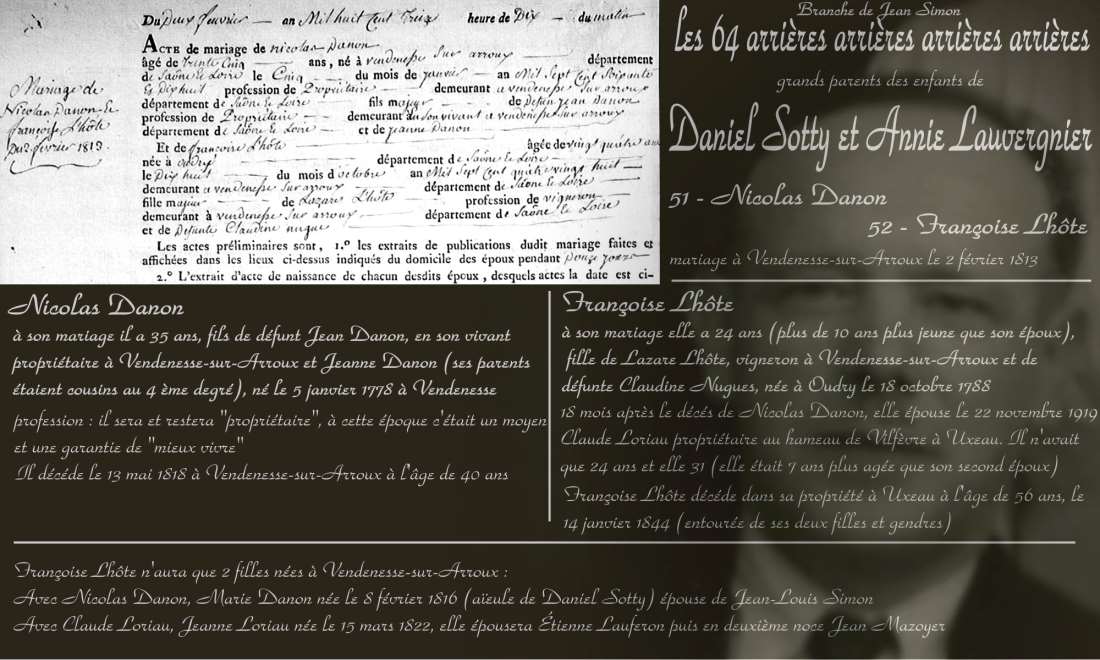 Du Deux fevrier — an Mil huit Cent treize heure de Dix — du matin
ACTE de mariage de nicolas Danon
âgé de trente Cinq — ans, né à vendenesse Sur arroux — département
de Saône et Loire le Cinq — du mois de janvier — an Mil Sept Cent Soixante
et Dix huit profession de Propriétaire — demeurant a vendenesse Sur arroux
département de Saône et Loire — fils majeur — de Defun jean Danon
profession de Propriétaire — demeurant du Son vivant a vendenesse Sur arroux
département de Saône et Loire — et de jeanne Danon
Et de francoise L'hôte — âgée de vingt quatre ans
née à oudry — département de Saône et Loire —
le Dix huit — du mois d'octobre — an Mil Sept Cent quatre vingt huit —
demeurant a vendenesse Sur arroux département de Saône et Loire —
fille majeur — de Lazare L'hôte — profession de vigneron —
demeurant à vendenesse Sur arroux — département de Saône et Loire
et de Defunte Claudine nugue —
Les actes préliminaires sont, 1.º les extraits de publications dudit mariage faites et
affichées dans les lieux ci-dessus indiqués du domicile des époux pendant
2.º L'extrait d'acte de naissance de chacun desdits époux, desquels actes la date est ci-
Mariage de
Nicolas Danon et
françoise L'hôte
Du 2 fevrier 1813.
Branche de Jean Simon
les 64 arrières arrières arrières arrières
grands parents des enfants de
Daniel Sotty et Annie Lauvergnier
51 - Nicolas Danon
52 - Françoise Lhôte
mariage à Vendenesse-sur-Arroux le 2 février 1813
Nicolas Danon
à son mariage il a 35 ans, fils de défunt Jean Danon, en son vivant
propriétaire à Vendenesse-sur-Arroux et Jeanne Danon (ses parents
étaient cousins au 4 ème degré), né le 5 janvier 1778 à Vendenesse
profession : il sera et restera "propriétaire", à cette époque c'était un moyen
et une garantie de "mieux vivre"
Il décéde le 13 mai 1818 à Vendenesse-sur-Arroux à l'âge de 40 ans
Françoise Lhôte
à son mariage elle a 24 ans (plus de 10 ans plus jeune que son époux),
fille de Lazare Lhôte, vigneron à Vendenesse-sur-Arroux et de
défunte Claudine Nugues, née à Oudry le 18 octobre 1788
18 mois après le décés de Nicolas Danon, elle épouse le 22 novembre 1919
Claude Loriau propriétaire au hameau de Vilfèvre à Uxeau. Il n'avait
que 24 ans et elle 31 (elle était 7 ans plus agée que son second époux)
Françoise Lhôte décéde dans sa propriété à Uxeau à l'âge de 56 ans, le
14 janvier 1844 (entourée de ses deux filles et gendres)
Françoise Lhôte n'aura que 2 filles nées à Vendenesse-sur-Arroux :
Avec Nicolas Danon, Marie Danon née le 8 février 1816 (aïeule de Daniel Sotty) épouse de Jean-Louis Simon
Avec Claude Loriau, Jeanne Loriau née le 15 mars 1822, elle épousera Étienne Lauferon puis en deuxième noce Jean Mazoyer